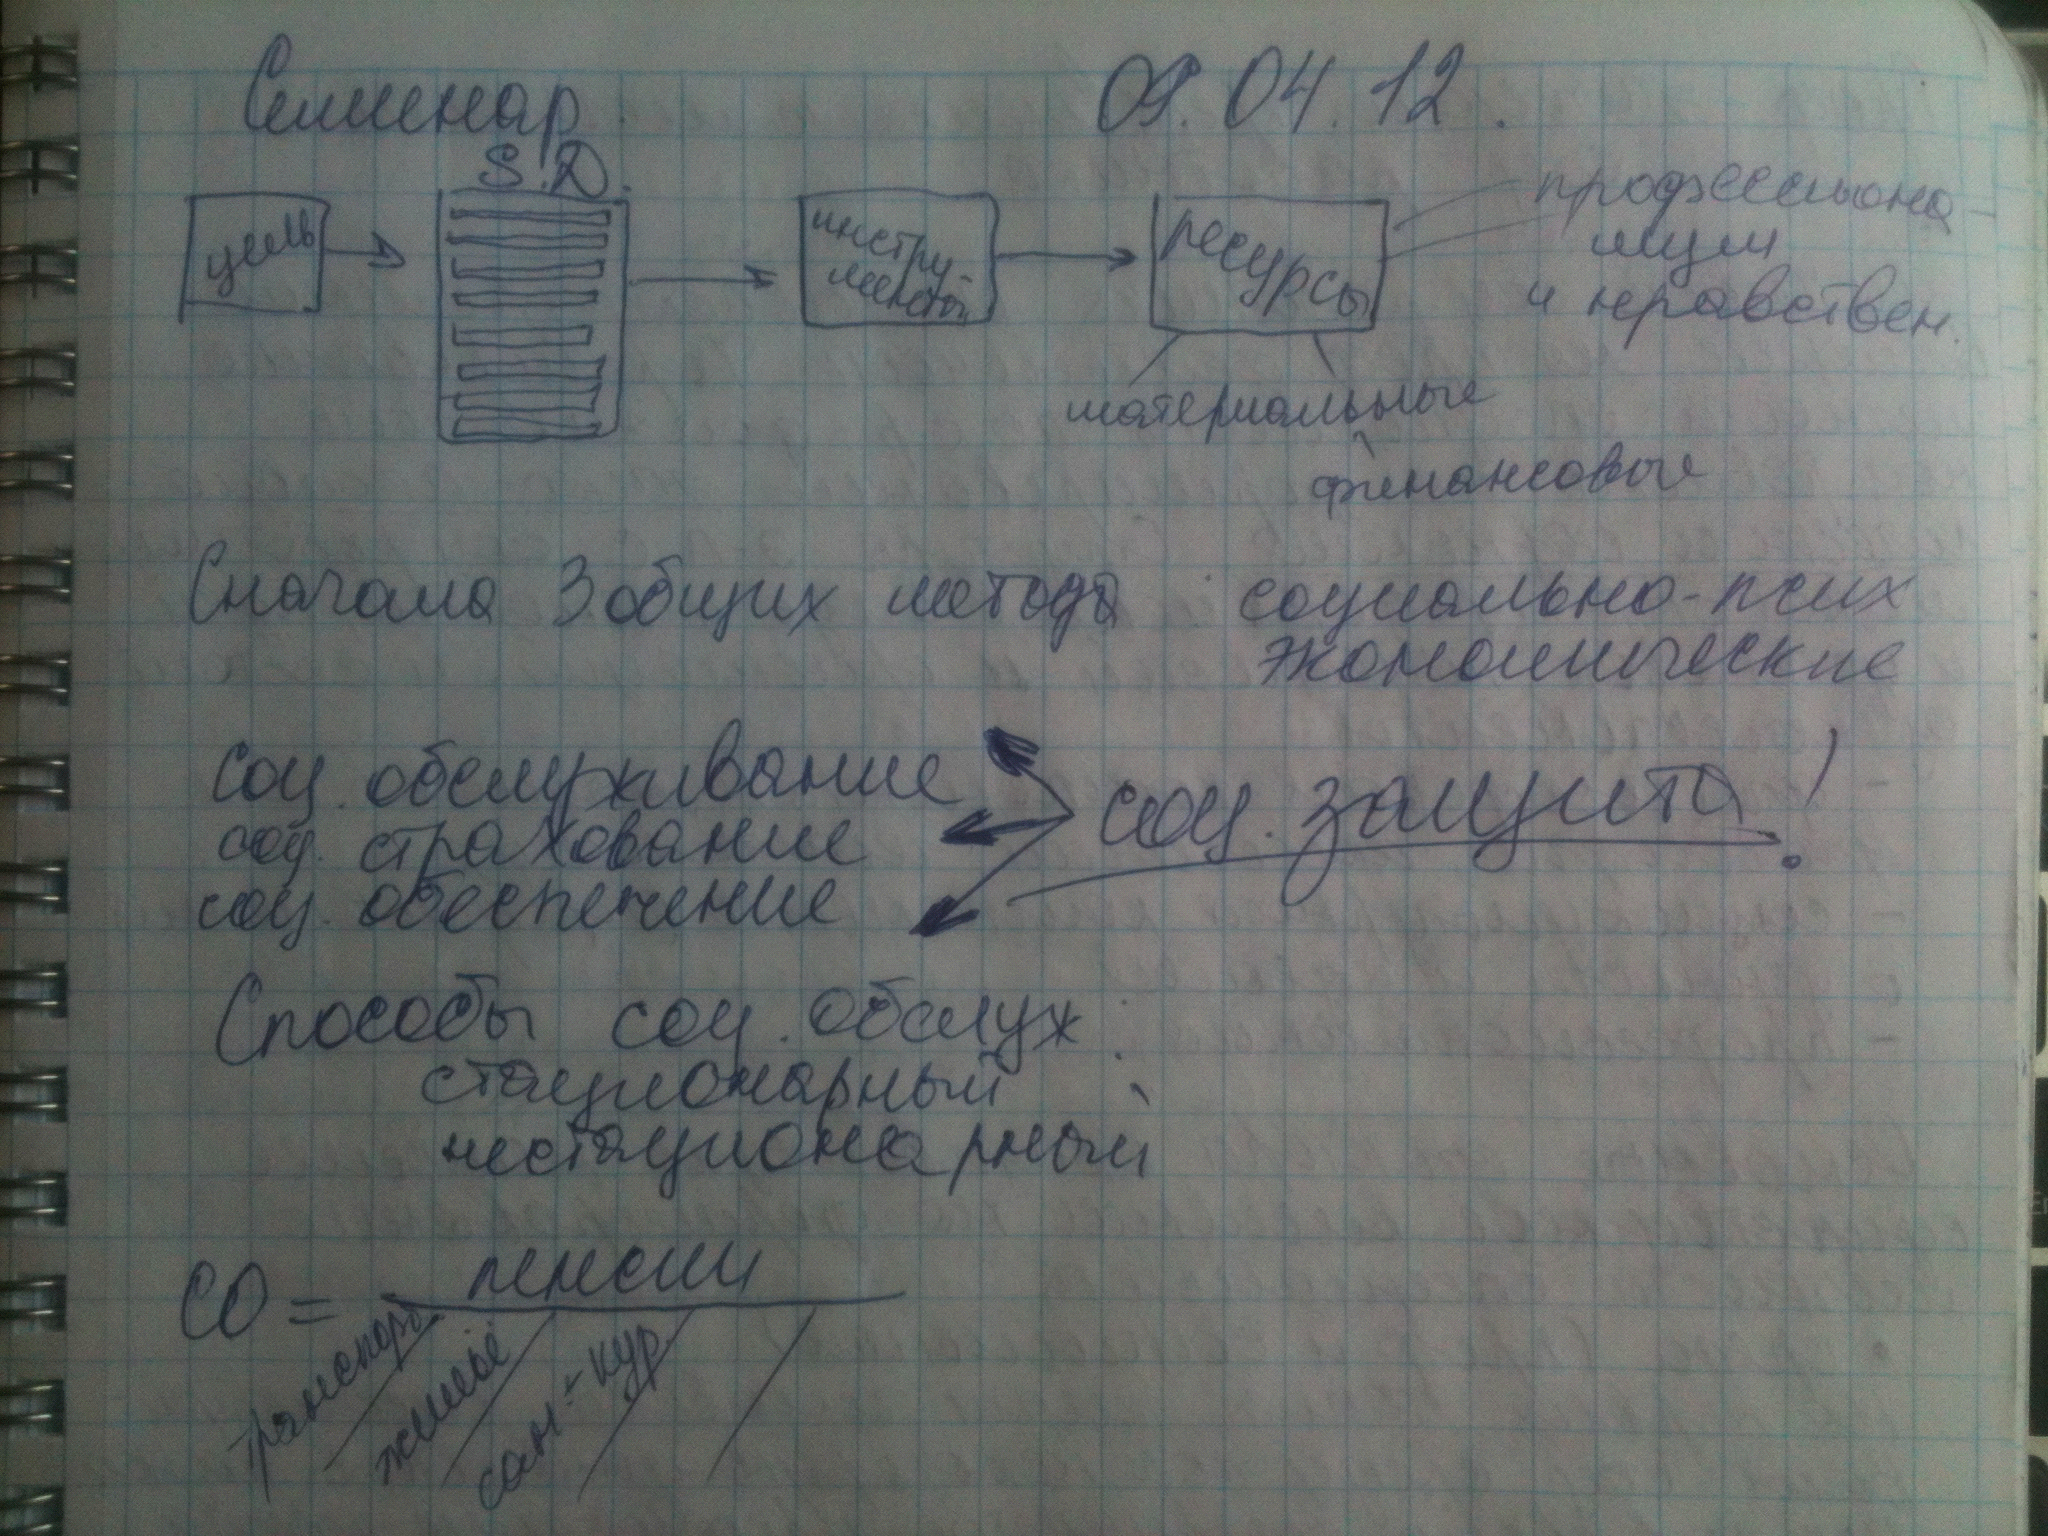 Семинар. 09.04.12.
S.D.
цель
инстру-
менты
ресурсы
профессиона-
лизм
и нравствен.
материальные
финансовые
Сначала 3 общих метода : социально-псих
экономические
соц. обслуживание
соц. страхование
соц. обеспечение
соц. защита!
Способы соц. обслуж:
стационарный
нестационарный
СО = пенсии
транспорт
жильё
сан.-кур